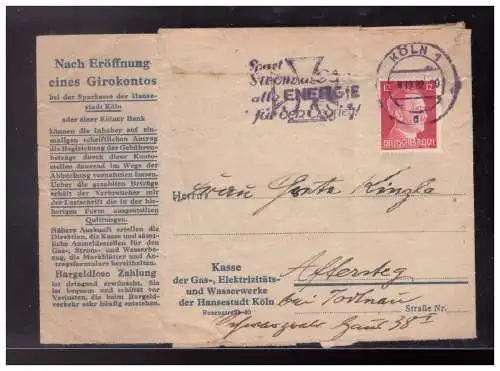 Nach Eröffnung
eines Girokontos
bei der Sparkasse der Hanse-
stadt Köln
oder einer Kölner Bank
können die Inhaber auf ein-
maligen schriftlichen Antrag
die Begleichung der Gebühren-
beträge durch diese Konto-
stellen dauernd im Wege der
Abbuchung vornehmen lassen.
Ueber die gezahlten Beträge
erhält der Verbraucher mit
der Lastschrift die in der bis-
herigen Form ausgestellten
Quittungen.
Nähere Auskunft erteilen die
Direktion, die Kasse und sämt-
liche Anmeldestellen für den
Gas-, Strom- und Wasserbe-
zug, die Merkblätter und An-
tragsformulare bereithalten.
Bargeldlose Zahlung
ist dringend erwünscht. Sie
ist bequem und schützt vor
Verlusten, die beim Bargeld-
verkehr sehr häufig entstehen.
Spart
Strom
alle ENERGIE
für den Sieg!
KÖLN 1
d
12 12
DEUTSCHES REICH
Herrn
Frau Grete Kinzla
Kasse
der Gas-, Elektrizitäts-
und Wasserwerke
der Hansestadt Köln
Rosenstraße 30
Aftersteg
bei Todtnau
Straße Nr.
Schwarzwald Haus 38